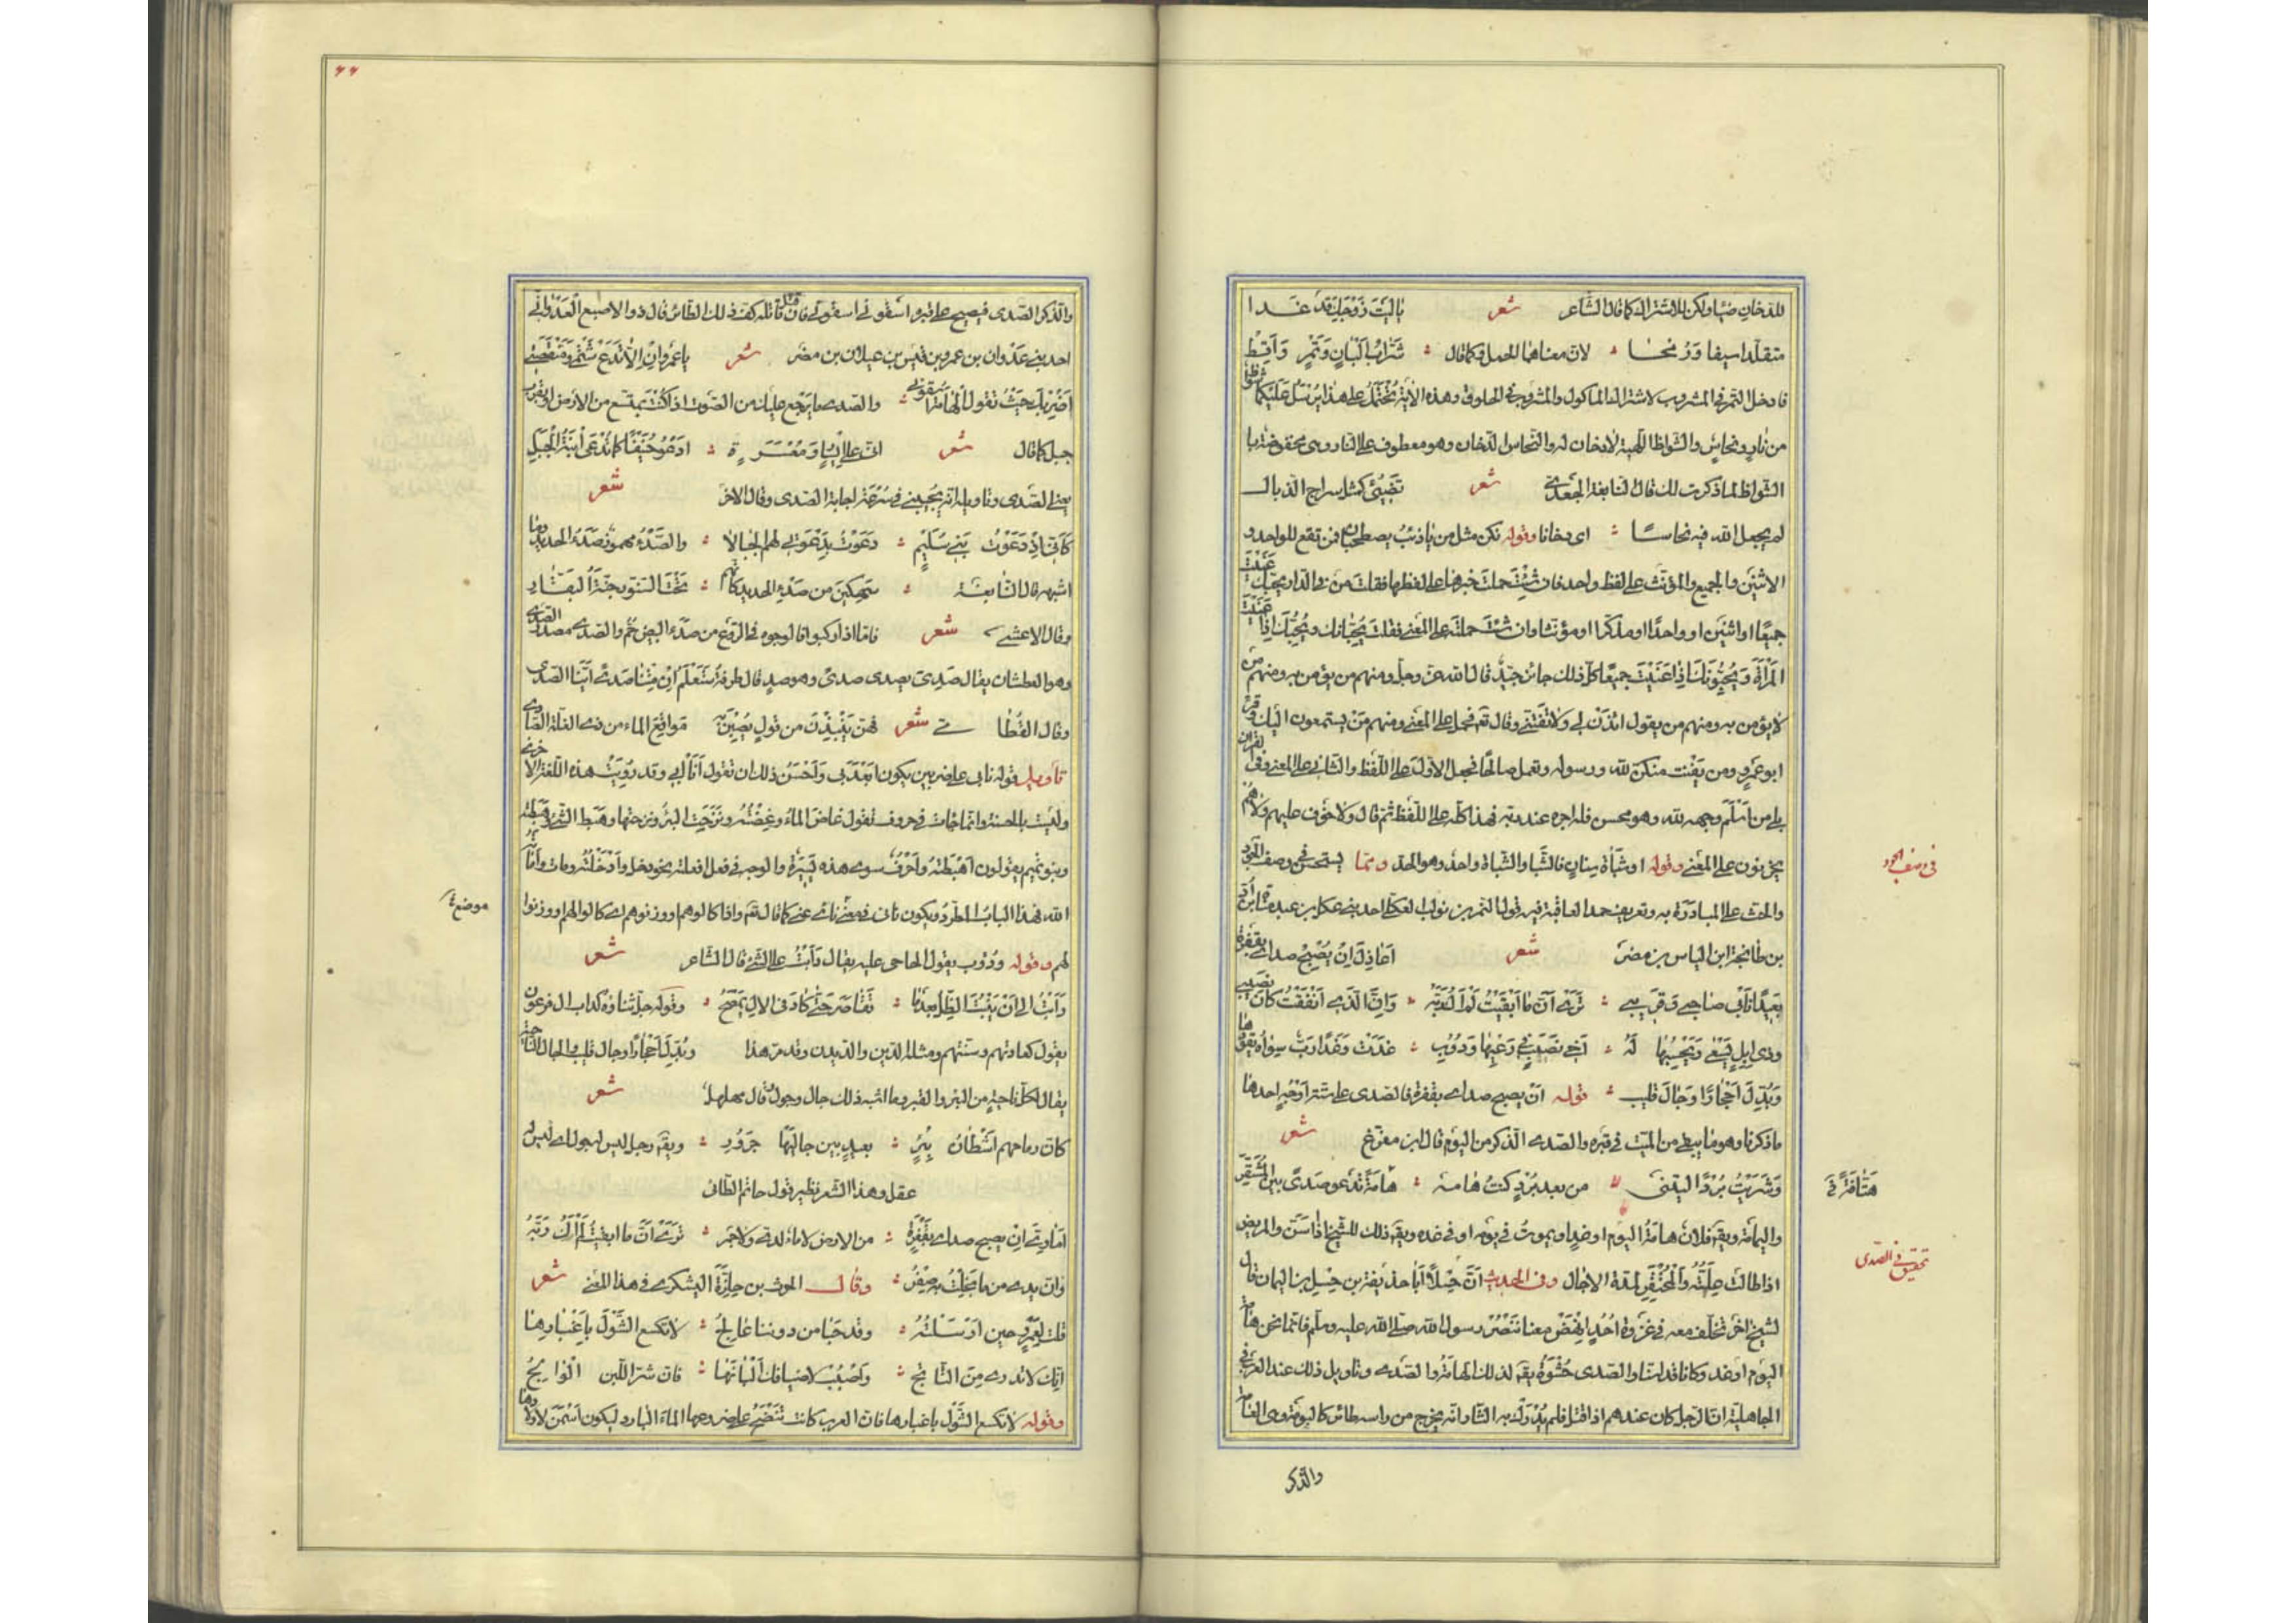 للدخان ضياء ولكن للاشتراك كما قال الشاعر شعر يا ليت زوجك قد غدا
متقلدا سيفا ورمحا لان معناهما الحمل وكما قال شراب البان وتمر واقط
فادخل التمر في المشروب لاشتراك الماكول والمشروب في الحلوق وهذه الاية تحتمل على هذا يرسل عليكما شواظ
من نار ونحاس والشواظ اللهب لا دخان له والنحاس الدخان وهو معطوف على النار وهي مخفوضة با
الشواظ لما ذكرت لك قال النابغة الجعدي شعر تضيئ كمثل سراج الذبال
لم يجعل الله فيه نحاسا اي دخانا وقوله نكن مثل من يا ذئب يصطحبان فمن تقع للواحد و
الاثنين والجميع والمؤنث على لفظ واحد فان شئت حملت خبرها على لفظها فقلت من في الدار يحبك عنيت
جميعا او اثنين او واحدا او مذكرا او مؤنثا وان شئت حملت على المعنى فقلت يحبانك وتحبك اذا عنيت
المرأة ويحبونك اذا عنيت جميعا كل ذلك جائز جيد قال الله عز وجل ومنهم من يؤمن به ومنهم من
لا يؤمن به ومنهم من يقول ائذن لي ولا تفتني وقال تعم فحمل على المعنى ومنهم من يستمعون اليك وقرأ
ابو عمرو ومن يقنت منكن لله ورسوله وتعمل صالحا فحمل الاول على اللفظ والثاني على المعنى وفي القرآن
بلى من اسلم وجهه لله وهو محسن فله اجره عند ربه فهذا كله على اللفظ ثم قال ولا خوف عليهم ولا هم
يحزنون على المعنى وقوله او شباة سنان فالشبا والشباة واحد وهو الحد ومما يستحسن في وصف الجود
في وصف الجود
والحث على المبادرة به وتعريف حمد العاقبة فيه قول النمر بن تولب العكلي احد بني عكل بن عبد مناة بن اد
بن طابخة ابن الياس بن مضر شعر اعاذل ان يصبح صداي بقفرة
بعيدا نآني صاحبي وقريبي ترى ان ما ابقيت لم اك ربه وان الذي انفقت كان نصيبي
وذي ابل يسعى ويحسبها له اخي نصب في رعيها ودؤب غدت وغدا رب سواه يقودها
وبدل احجارا وجال قليب قوله ان يصبح صداي بقفرة فالصدى على ستة اوجه احدها
ما ذكرنا وهو ما يبقى من الميت في قبره والصدى الذكر من البوم قال ابن مفرغ شعر
وشريت بردا ليتني من بعد برد كنت هامه هامة تدعو صدى بين المشقر
هتافة في
واليمامة ويقه فلان هامة اليوم او غد اي يموت في يومه او في غده ويقه ذلك للشيخ اذا اسن والمريض
تحقيق في الصدى
اذا طالت علته والمحتقر لمدة الاجال وفي الحديث ان حسلا ابا حذيفة بن حسل بن اليمان قال
لشيخ اخر تخلف معه في غزوة احد انهض معنا ننصر رسول الله صلى الله عليه وسلم فانما نحن هامة
اليوم او غد وكانا قد اسنا والصدى حشوة يقه لذلك الهامة والصدى وتاويل ذلك عند العرب في
الجاهلية ان الرجل كان عندهم اذا قتل فلم يدرك به الثار انه يخرج من راسه طائر كالبومة وهي الهامة
والذكر
٦٦
والذكر الصدى فيصيح على قبره اسقوني اسقوني فان قتل قاتله كف ذلك الطائر قال ذو الاصبع العدواني
احد بني عدوان بن عمرو بن قيس بن عيلان بن مضر شعر يا عمرو ان لا تدع شتمي ومنقصتي
اضربك حيث تقول الهامة اسقوني والصدى ما يرجع عليك من الصوت اذا كنت بمتسع من الارض او بقرب
جبل كما قال شعر اني على ايساري ومعسرة ادعو حنيفا كما تدعى ابنة الجبل
يعني الصدى وتاويله انه يجيبني في سرعة اجابة الصدى وقال الاخر شعر
كاني اذ دعوت بني سليم دعوت بدعوتي لهم الجبالا والصدء مهموز صدء الحديد وما
اشبهه قال النابغة سهكين من صدء الحديد كانهم تحت السنور جنة البقار
وقال الاعشى شعر فاما اذا ركبوا فالوجوه في الروع من صدء البيض حم والصدى مصدر الصدى
وهو العطشان يقال صدي يصدى صدى وهو صد قال طرفة ستعلم ان متنا صدى اينا الصدي
وقال القطامي شعر فهن ينبذن من قول يصبن به مواقع الماء من ذي الغلة الصادي
تاويل قوله نآني على ضربين يكون ابعدني واحسن ذلك ان تقول انآني وقد رويت هذه اللغة الاخرى
وليست بالحسنة وانما جاءت في حروف تقول غاض الماء وغضته ونزحت البئر ونزحتها وهبط الشئ وهبطته
وبنو تميم يقولون اهبطته واحرف سوى هذه يسيرة والوجه في فعل افعلته نحو دخل وادخلته ومات واماته
الله فهذا الباب المطرد ويكون نآني في موضع نأى عني كما قال تعم واذا كالوهم او وزنوهم اي كالوا لهم او وزنوا
موضع
لهم وقوله ودؤب يقول الحاحي عليه يقال دأبت على الشئ قال الشاعر شعر
دأبت الى ان ينبت الظل بعدما تقاصر حتى كاد في الال يمصح وقوله جل ثناؤه كداب ال فرعون
يقول كعادتهم وسنتهم ومثله الدين والديدن وقد مر هذا وبدل احجارا وجال قليب الجال الناحية
يقال لكل ناحية من البئر والقبر وما اشبه ذلك جال وجول قال مهلهل شعر
كان رماحهم اشطان بئر بعيد بين جاليها جرور ويقه رجل ليس له جول اي ليس له
عقل وهذا الشعر نظير قول حاتم الطائي
اماوي ان يصبح صداي بقفرة من الارض لا ماء لدي ولا خمر تري ان ما ابقيت لم اك ربه
وان يدي مما بخلت به صفر وقال الحرث بن حلزة اليشكري في هذا المعنى شعر
قلت لعمرو حين ارسلته وقد حبا من دوننا عالج لا تكسع الشول باغبارها
انك لا تدري من الناتج واصبب لاضيافك البانها فان شر اللبن الوالج
وقوله لا تكسع الشول باغبارها فان العرب كانت تنضح على ضروعها الماء البارد ليكون اسمن لاولادها